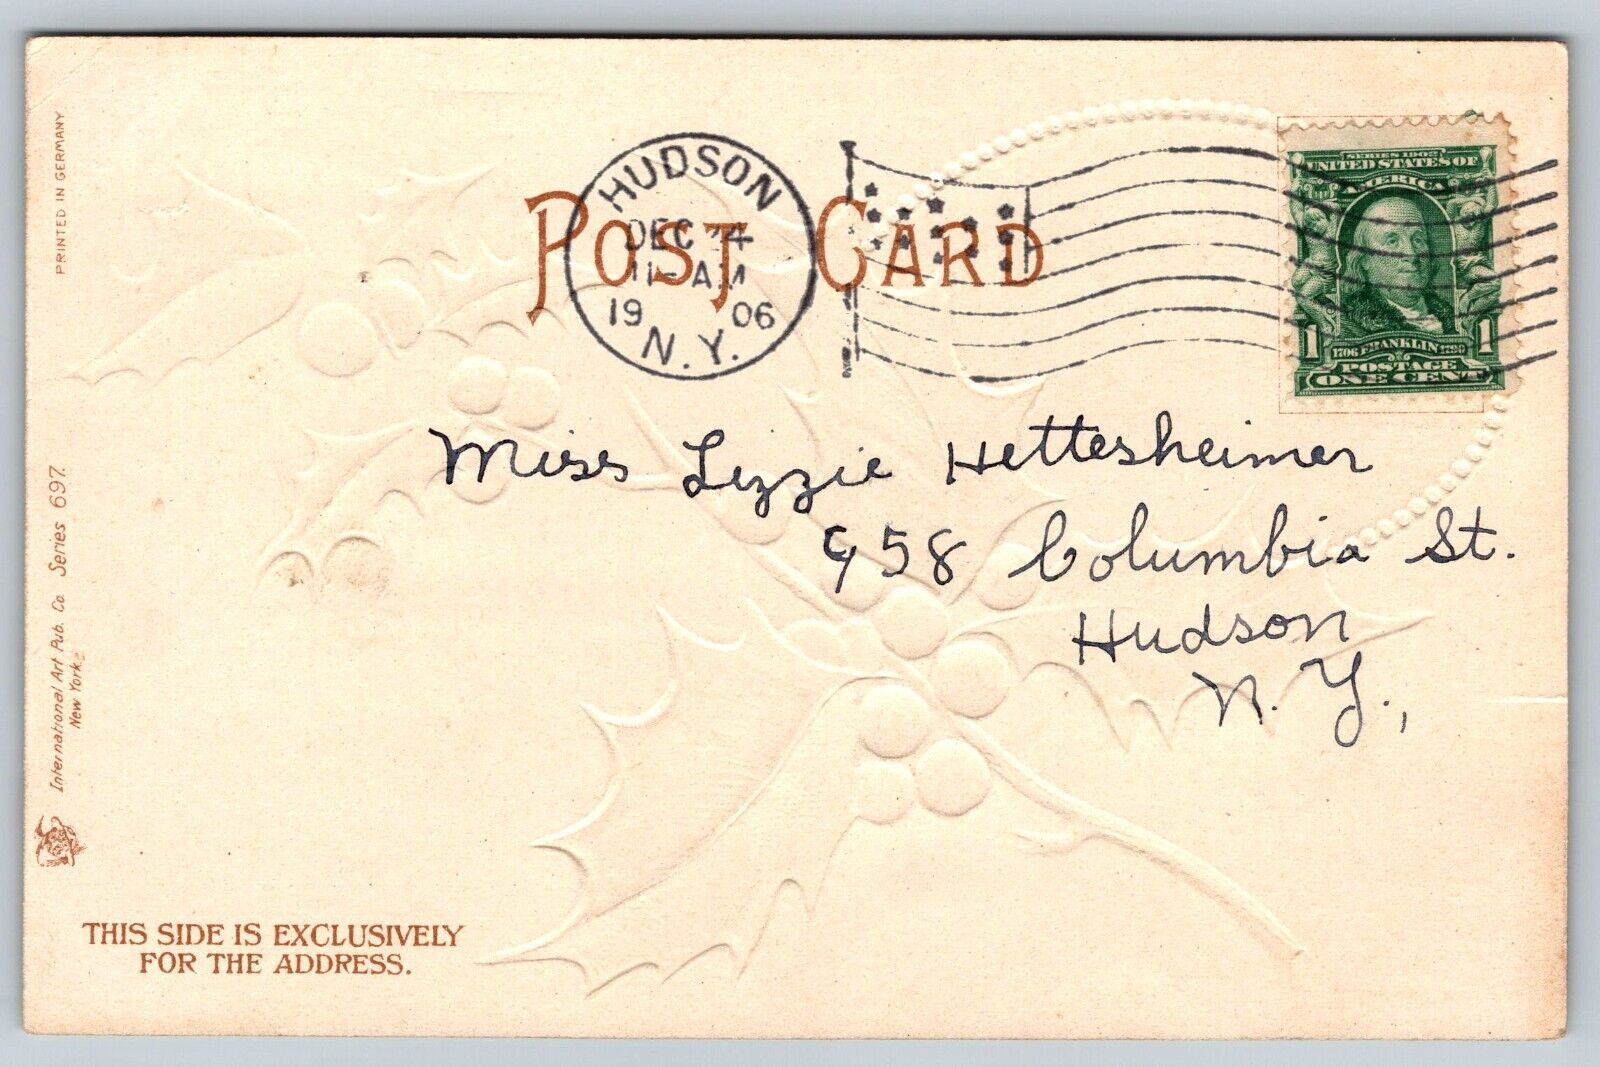 PRINTED IN GERMANY
POST CARD
HUDSON
DEC 24
11-AM
19 06
N.Y.
SERIES 1902
UNITED STATES OF
AMERICA
1 1
1706 FRANKLIN 1790
POSTAGE
ONE CENT
Miss Lizzie Hettesheimer
958 Columbia St.
Hudson
N.Y.,
International Art Pub. Co. Series 697.
New York
THIS SIDE IS EXCLUSIVELY
FOR THE ADDRESS.